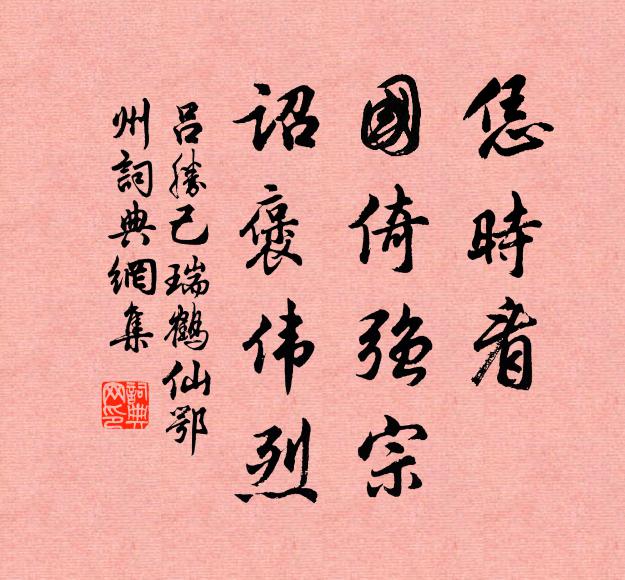 恁時看
國倚強宗
詔褒伟烈
吕勝己瑞鶴仙鄂
州詞典網集
詞典
网印